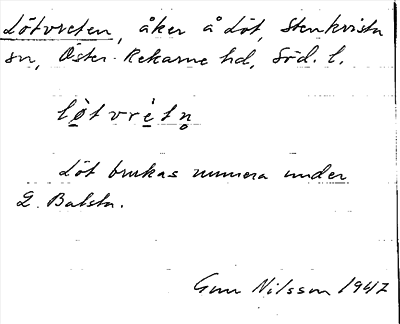 Lötvreten, åker å Löt, Stenkvista
sn, Öster-Rekarne hd, Söd. l.
lø̀tvrètn̥
Löt brukas numera under
L. Balsta.
Gun Nilsson 1947